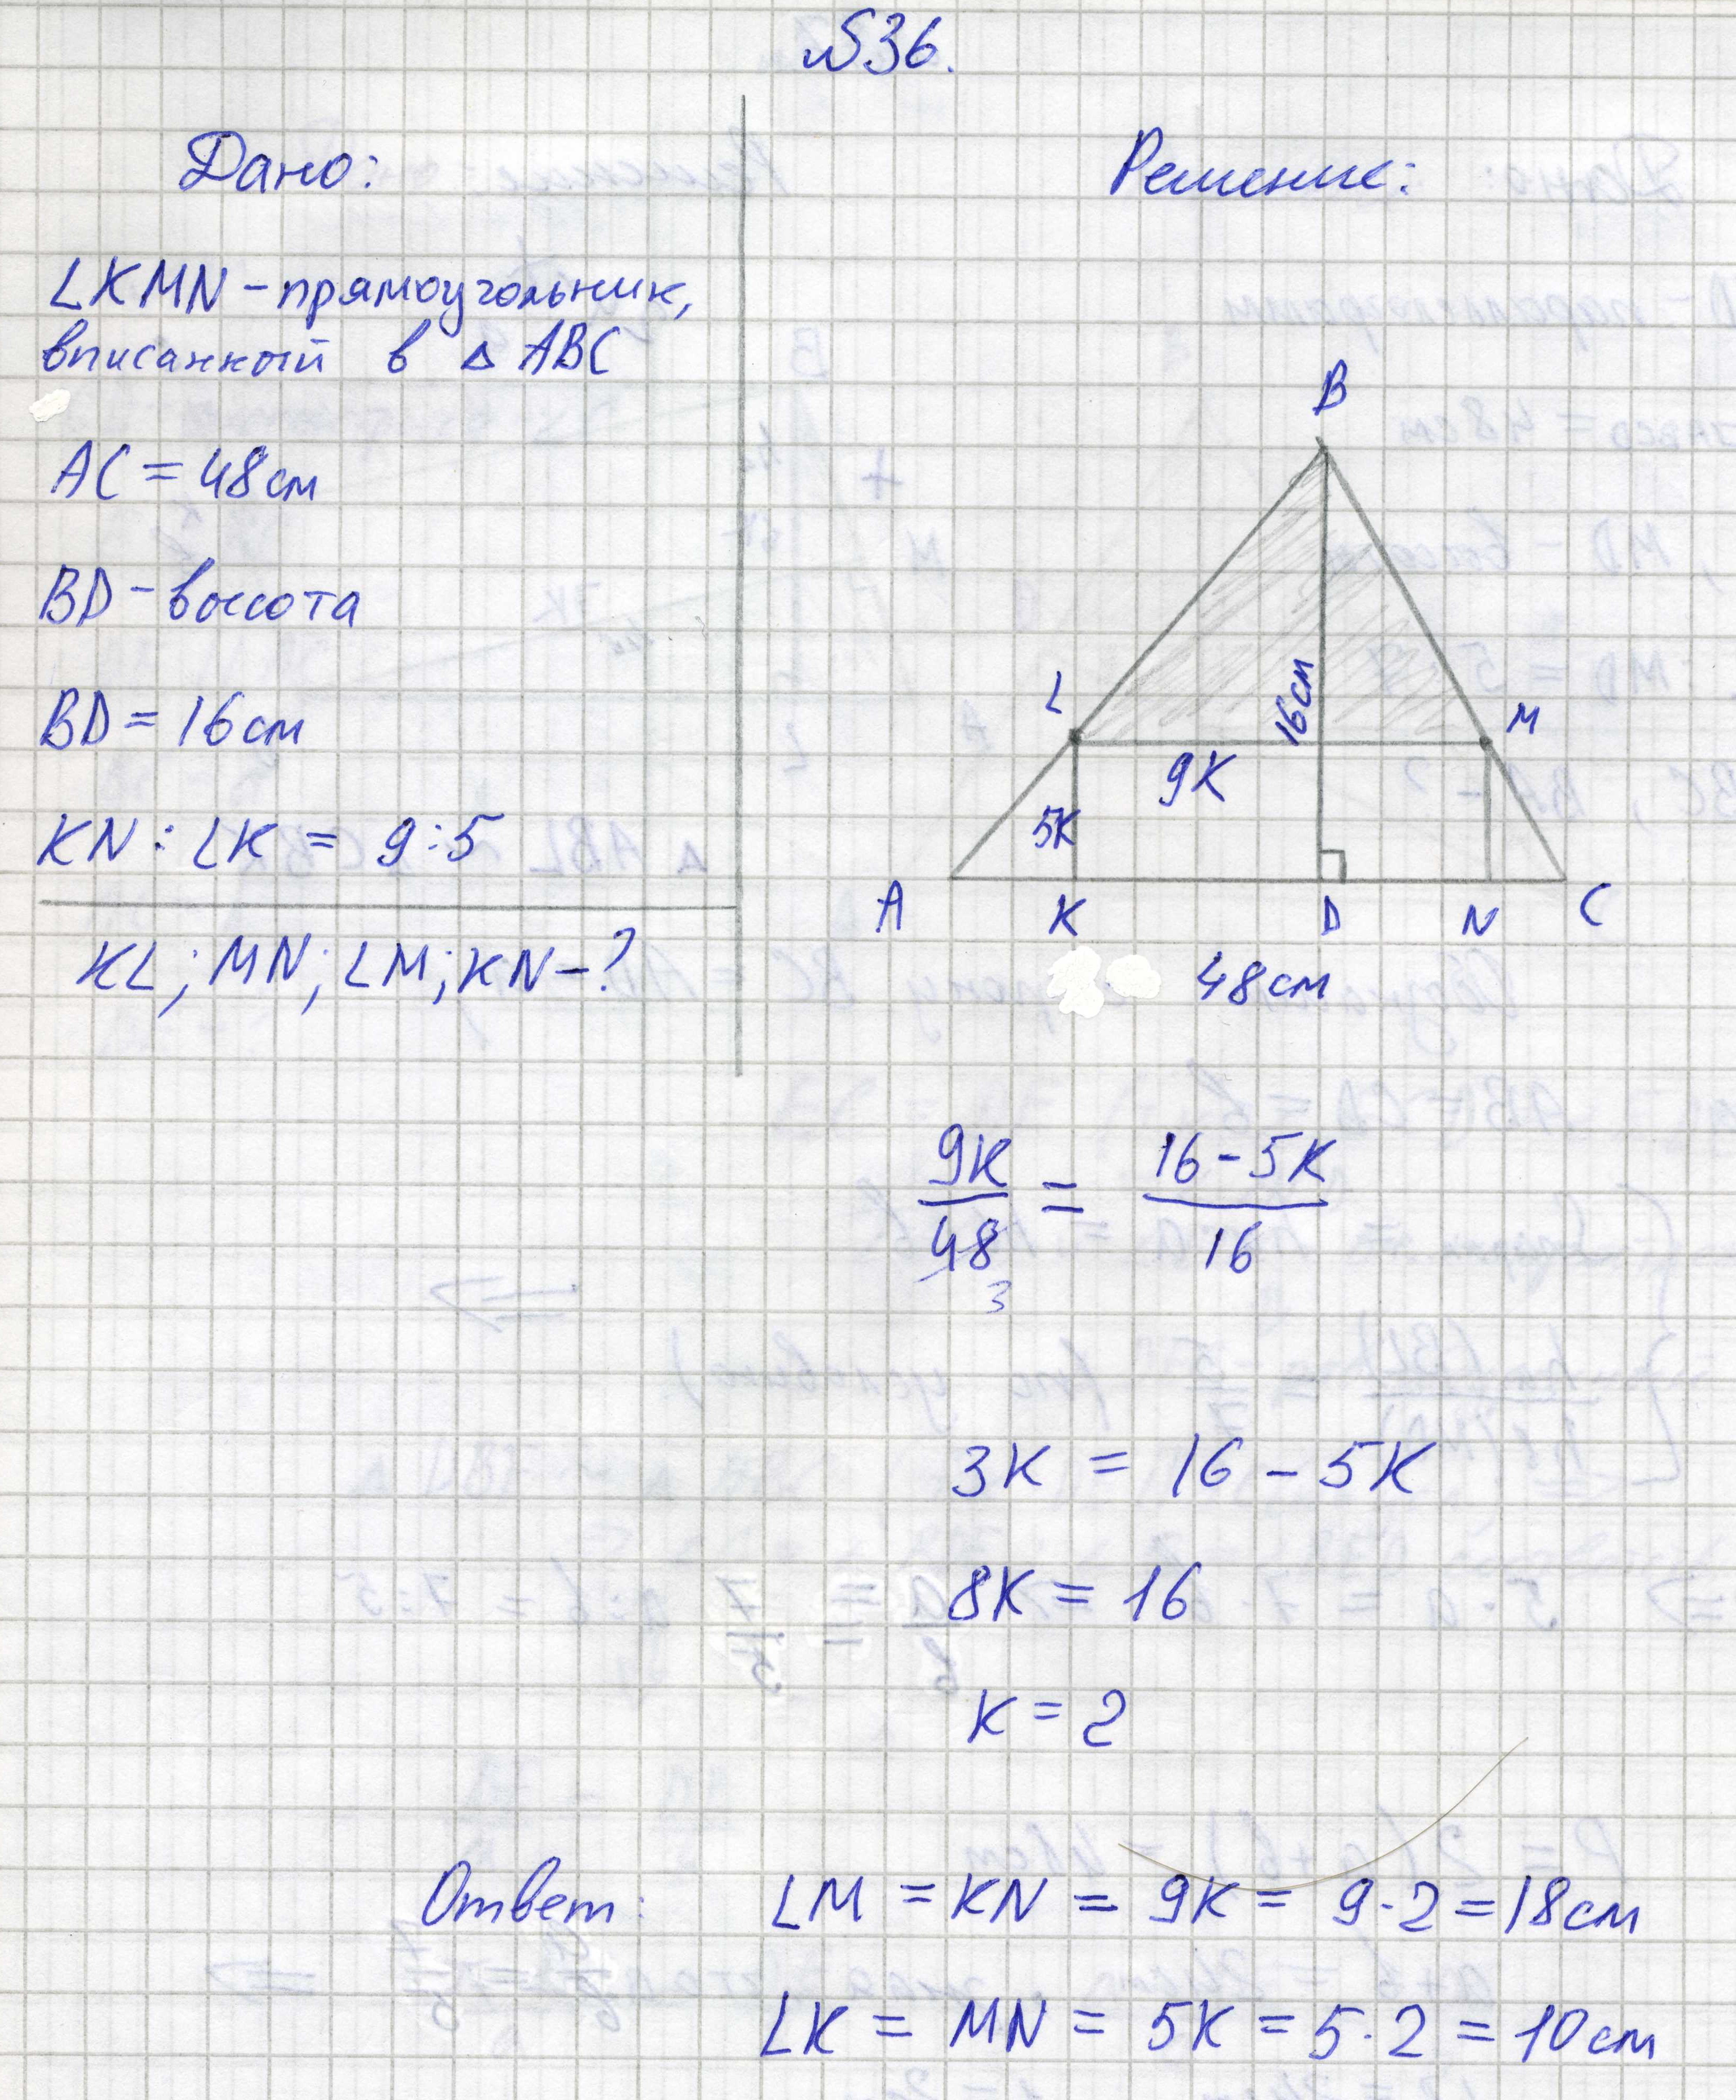 №36.
Дано:
LKMN - прямоугольник,
вписанный в △ ABC
AC = 48см
BD - высота
BD = 16см
KN : LK = 9:5
KL; MN; LM; KN - ?
Решение:
B
L
16см
M
9K
5K
A K D N C
48см
9K/48 = 16-5K/16
3
3K = 16 - 5K
8K = 16
K = 2
Ответ: LM = KN = 9K = 9·2 = 18см
LK = MN = 5K = 5·2 = 10см